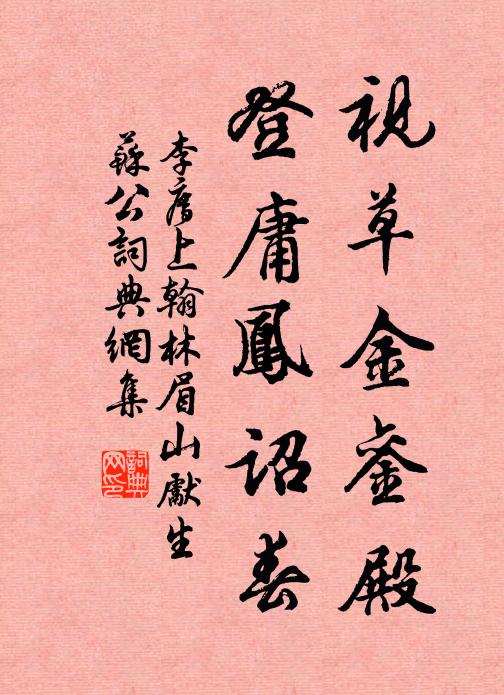 視草金銮殿
登庸鳳詔春
李廌上翰林眉山獻生
蘇公詞典網集
詞典
网印